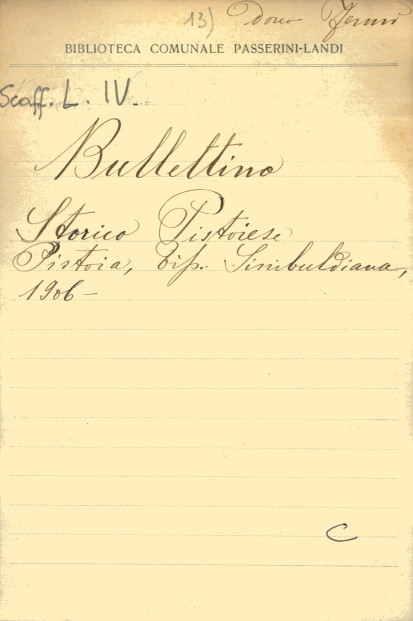 13) Dono Fermi
BIBLIOTECA COMUNALE PASSERINI-LANDI
Scaff. L. IV.
Bullettino
Storico Pistoiese
Pistoia, Tip. Sinibuldiana,
1906 -
C